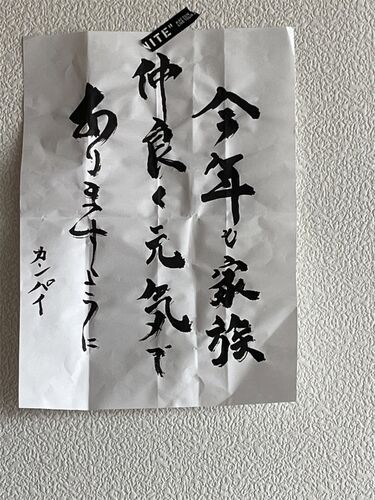 今年も家族
仲良く元気で
ありますように
カンパイ